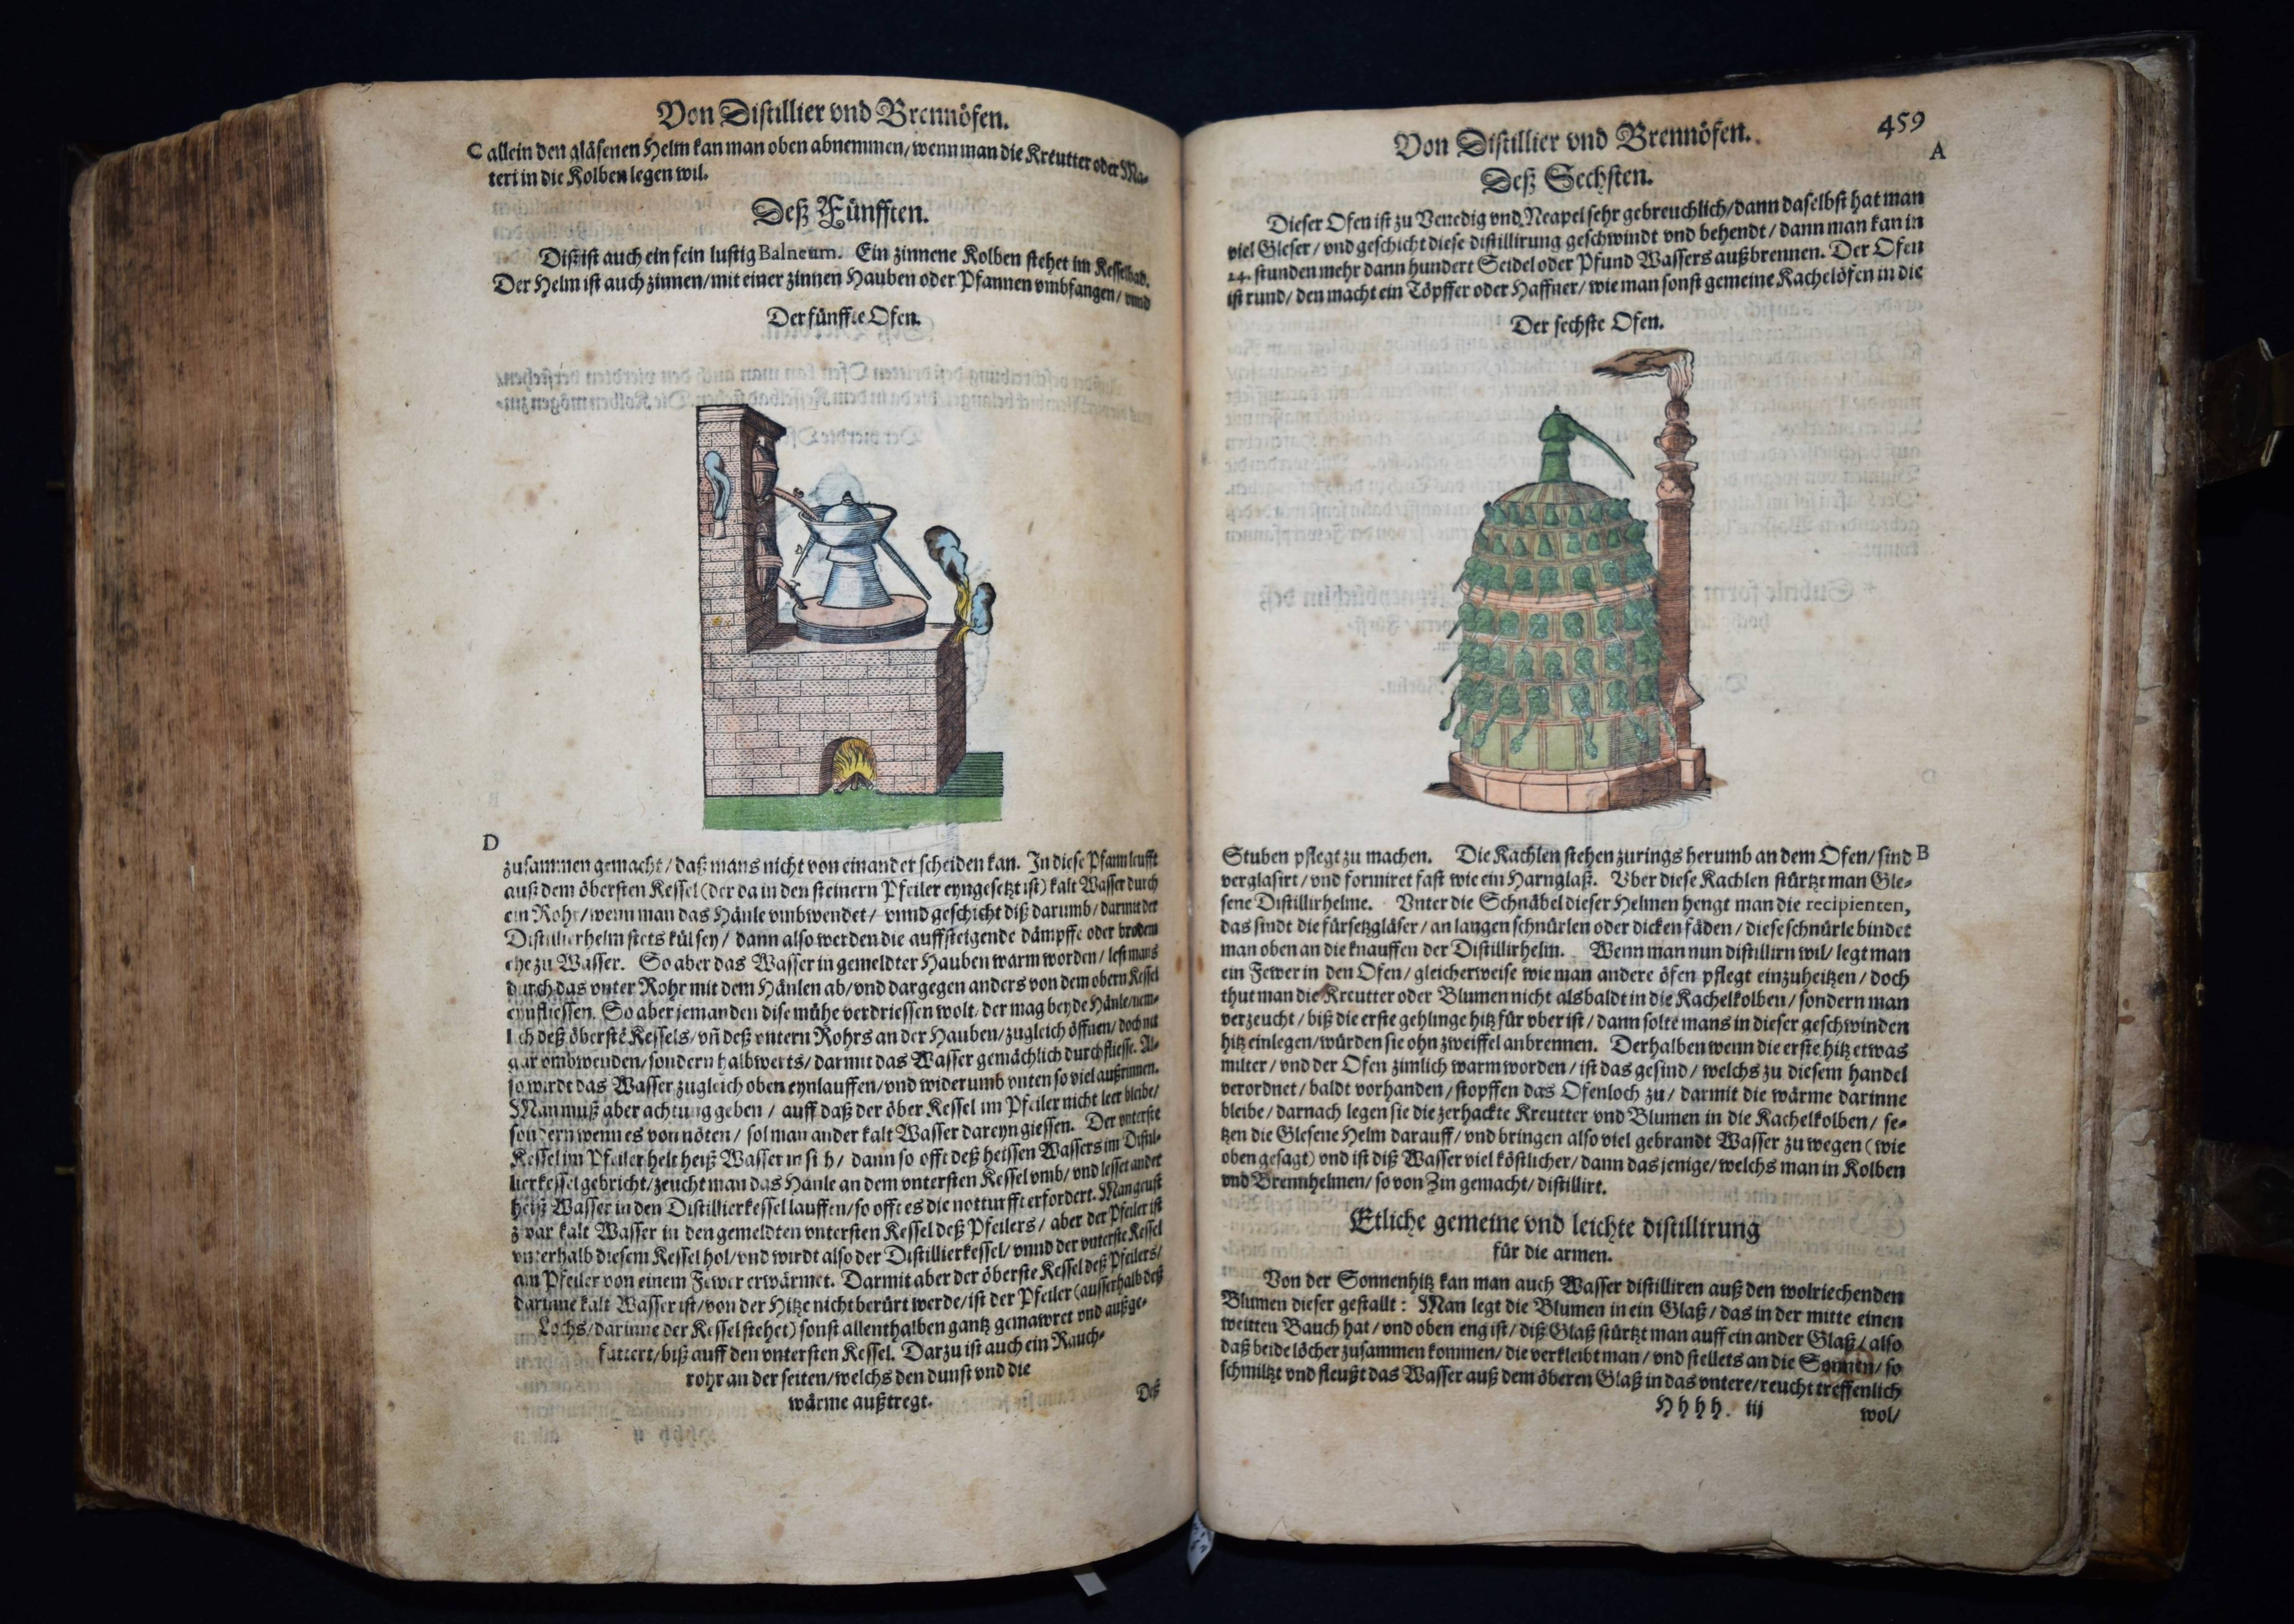 Von Distillier vnd Brennöfen.
C allein den gläsenen Helm kan man oben abnemmen/ wenn man die Kreutter oder Ma-
teri in die Kolben legen wil.
Deß Fünfften.
Diß ist auch ein fein lustig Balneum. Ein zinnene Kolben stehet im Kesselbad.
Der Helm ist auch zinnen/ mit einer zinnen Hauben oder Pfannen vmbfangen/ vnnd
Der fünffte Ofen.
D
zusammen gemacht/ daß mans nicht von einander scheiden kan. In diese Pfann leufft
auß dem öbersten Kessel (der da in den steinern Pfeiler eyngesetzt ist) kalt Wasser durch
ein Rohr/ wenn man das Hänle vmbwendet/ vnnd geschicht diß darumb/ darmit der
Distillierhelm stets kül sey/ dann also werden die auffsteigende dämpffe oder brodem
ehe zu Wasser. So aber das Wasser in gemeldter Hauben warm worden/ lest mans
durch das vnter Rohr mit dem Hänlen ab/ vnd dargegen anders von dem obern Kessel
eynfliessen. So aber jemanden dise mühe verdriessen wolt/ der mag beyde Hänle/ nem-
lich deß öberstē Kessels/ vñ deß vntern Rohrs an der Hauben/ zugleich öffnen/ doch nit
gar vmbwenden/ sondern halbwerts/ darmit das Wasser gemächlich durchfliesse. Al-
so wirdt das Wasser zugleich oben eynlauffen/ vnd widerumb vnten so viel außrinnen.
Man muß aber achtung geben/ auff daß der öber Kessel im Pfeiler nicht leer bleibe/
sondern wenn es von nöten/ sol man ander kalt Wasser dareyn giessen. Der vnterste
Kessel im Pfeiler helt heiß Wasser in sich/ dann so offt deß heissen Wassers im Distil-
lierkessel gebricht/ zeucht man das Hänle an dem vntersten Kessel vmb/ vnd lesset ander
heiß Wasser in den Distillierkessel lauffen/ so offt es die notturfft erfordert. Man geust
zwar kalt Wasser in den gemeldten vntersten Kessel deß Pfeilers/ aber der Pfeiler ist
vnterhalb diesem Kessel hol/ vnd wirdt also der Distillierkessel/ vnnd der vnterste Kessel
am Pfeiler von einem Fewer erwärmet. Darmit aber der öberste Kessel deß Pfeilers/
darinne kalt Wasser ist/ von der Hitze nicht berürt werde/ ist der Pfeiler (ausserhalb deß
Lochs/ darinne der Kessel stehet) sonst allenthalben gantz gemawret vnd außge-
füttert/ biß auff den vntersten Kessel. Darzu ist auch ein Rauch-
rohr an der seiten/ welchs den dunst vnd die
wärme außtregt.
Deß
Von Distillier vnd Brennöfen.
459
A
Deß Sechsten.
Dieser Ofen ist zu Venedig vnd Neapel sehr gebreuchlich/ dann daselbst hat man
viel Gleser/ vnd geschicht diese distillirung geschwindt vnd behendt/ dann man kan in
24. stunden mehr dann hundert Seidel oder Pfund Wassers außbrennen. Der Ofen
ist rund/ den macht ein Töpffer oder Haffner/ wie man sonst gemeine Kachelöfen in die
Der sechste Ofen.
Stuben pflegt zu machen. Die Kachlen stehen zurings herumb an dem Ofen/ sind B
verglasirt/ vnd formiret fast wie ein Harnglaß. Vber diese Kachlen stürtzt man Gle-
sene Distillirhelme. Vnter die Schnäbel dieser Helmen hengt man die recipienten,
das sindt die fürsetzgläser/ an langen schnürlen oder dicken fäden/ diese schnürle bindet
man oben an die knauffen der Distillirhelm. Wenn man nun distillirn wil/ legt man
ein Fewer in den Ofen/ gleicherweise wie man andere öfen pflegt einzuheitzen/ doch
thut man die Kreutter oder Blumen nicht alsbaldt in die Kachelkolben/ sondern man
verzeucht/ biß die erste gehlinge hitz für vber ist/ dann solte mans in dieser geschwinden
hitz einlegen/ würden sie ohn zweiffel anbrennen. Derhalben wenn die erste hitz etwas
milter/ vnd der Ofen zimlich warm worden/ ist das gesind/ welchs zu diesem handel
verordnet/ baldt vorhanden/ stopffen das Ofenloch zu/ darmit die wärme darinne
bleibe/ darnach legen sie die zerhackte Kreutter vnd Blumen in die Kachelkolben/ se-
tzen die Glesene Helm darauff/ vnd bringen also viel gebrandt Wasser zu wegen (wie
oben gesagt) vnd ist diß Wasser viel köstlicher/ dann das jenige/ welchs man in Kolben
vnd Brennhelmen/ so von Zin gemacht/ distillirt.
Etliche gemeine vnd leichte distillirung
für die armen.
Von der Sonnenhitz kan man auch Wasser distilliren auß den wolriechenden
Blumen dieser gestallt: Man legt die Blumen in ein Glaß/ das in der mitte einen
weitten Bauch hat/ vnd oben eng ist/ diß Glaß stürtzt man auff ein ander Glaß/ also
daß beide löcher zusammen kommen/ die verkleibt man/ vnd stellets an die Sonnen/ so
schmiltzt vnd fleußt das Wasser auß dem öberen Glaß in das vntere/ reucht treffenlich
Hhhh. iij
wol/